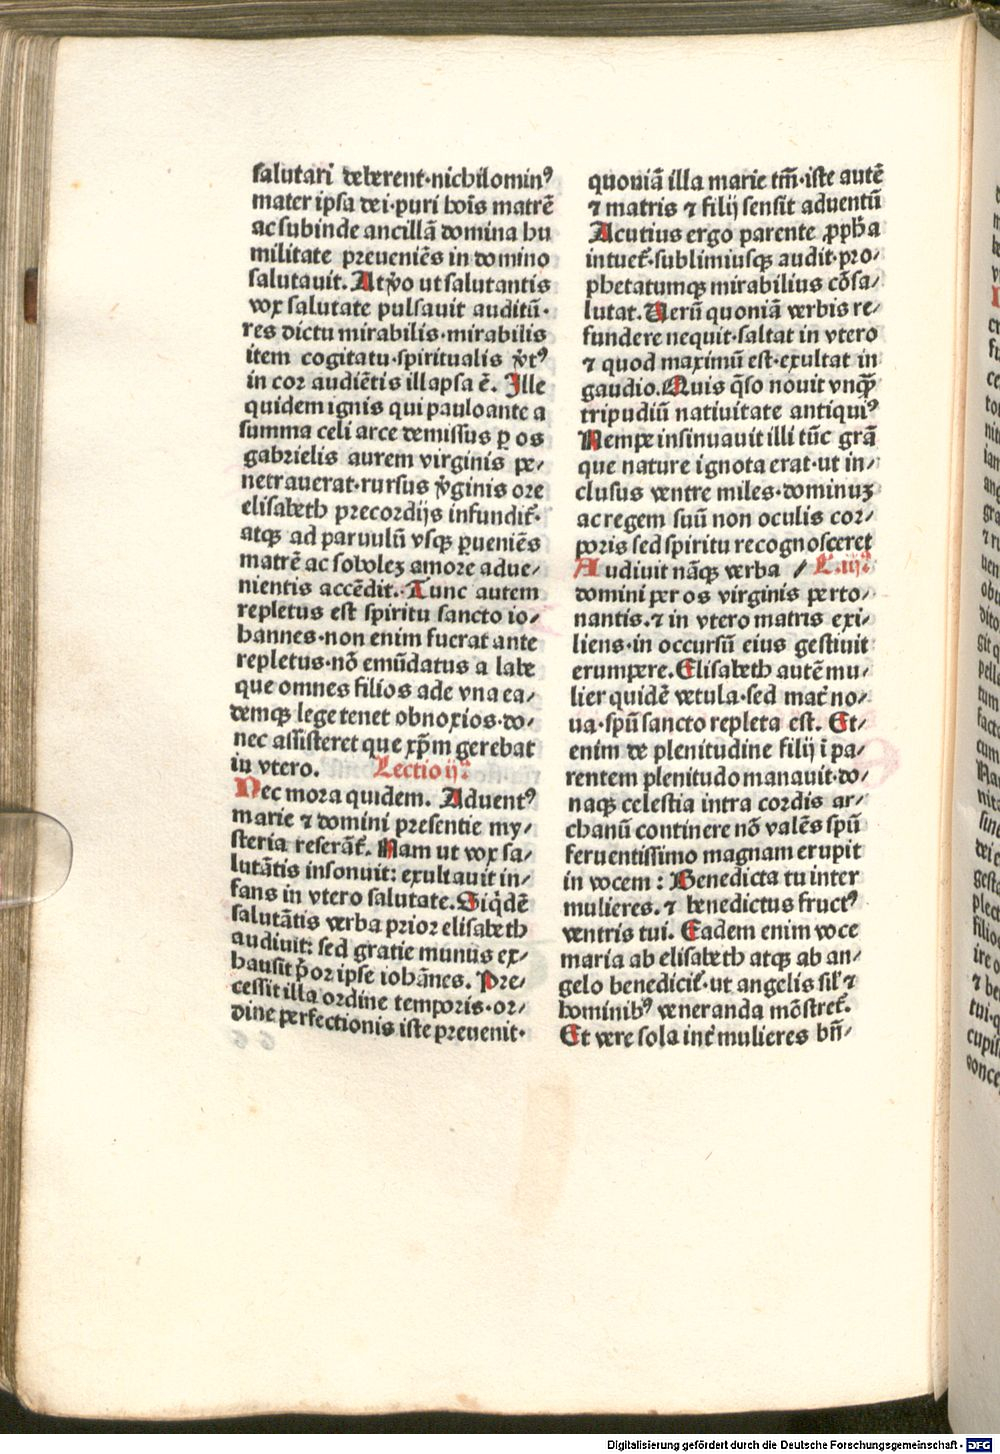 salutari deberent·nichilominꝰ
mater ipsa dei·puri hoīs matrē
ac subinde ancillā domina hu
militate preueniēs in domino
salutauit. At v̓o ut salutantis
vox salutate pulsauit auditū·
res dictu mirabilis·mirabilis
item cogitatu·spiritualis v̓tꝰ
in cor audiētis illapsa ē. Ille
quidem ignis qui pauloante a
summa celi arce demissus ꝑ os
gabrielis aurem virginis pe⸗
netrauerat·rursus v̓ginis ore
elisabeth precordijs infundit̄·
atqꝫ ad paruulū vsqꝫ ꝑueniēs
matrē ac sobolez amore adue⸗
nientis accēdit. Tunc autem
repletus est spiritu sancto io⸗
hannes·non enim fuerat ante
repletus·nō emūdatus a labe
que omnes filios ade vna ea⸗
demqꝫ lege tenet obnoxios·do⸗
nec assisteret que xp̄m gerebat
in vtero. Lectio ijᵃ
Nec mora quidem. Aduentꝰ
marie ⁊ domini presentie my⸗
steria reserāt̄. Nam ut vox sa⸗
lutātis insonuit: exultauit in⸗
fans in vtero salutate. Siqͥdē
salutātis verba prior elisabeth
audiuit: sed gratie munus ex⸗
hausit p̄or ipse iohānes. Pre⸗
cessit illa ordine temporis·or⸗
dine perfectionis iste preuenit·
quoniā illa marie tm̄·iste autē
⁊ matris ⁊ filij sensit aduentū
Acutius ergo parente ꝓph̄a
intuet̄·sublimiusqꝫ audit·pro⸗
phetatumqꝫ mirabilius cōsa⸗
lutat. Verū quoniā verbis re⸗
fundere nequit·saltat in vtero
⁊ quod maximū est·exultat in
gaudio. Quis qͣso nouit vnqꝙ̄
tripudiū natiuitate antiquiꝰ
Nempe insinuauit illi tūc grā
que nature ignota erat·ut in⸗
clusus ventre miles·dominuꝫ
ac regem suū non oculis cor⸗
poris sed spiritu recognosceret
Audiuit nāqꝫ verba / L. iijᵃ
domini per os virginis perto⸗
nantis·⁊ in vtero matris exi⸗
liens·in occursū eius gestiuit
erumpere. Elisabeth autē mu⸗
lier quidē vetula·sed mat̄ no⸗
ua·spū sancto repleta est. Et⸗
enim de plenitudine filij ī pa⸗
rentem plenitudo manauit·do⸗
naqꝫ celestia intra cordis ar⸗
chanū continere nō valēs spū
feruentissimo magnam erupit
in vocem : Benedicta tu inter
mulieres·⁊ benedictus fructꝰ
ventris tui. Eadem enim voce
maria ab elisabeth atqꝫ ab an⸗
gelo benedicit̄·ut angelis sil̄ ⁊
hominibꝰ veneranda mōstret̄.
Et vere sola int̄ mulieres bn̄⸗
Digitalisierung gefördert durch die Deutsche Forschungsgemeinschaft - DFG